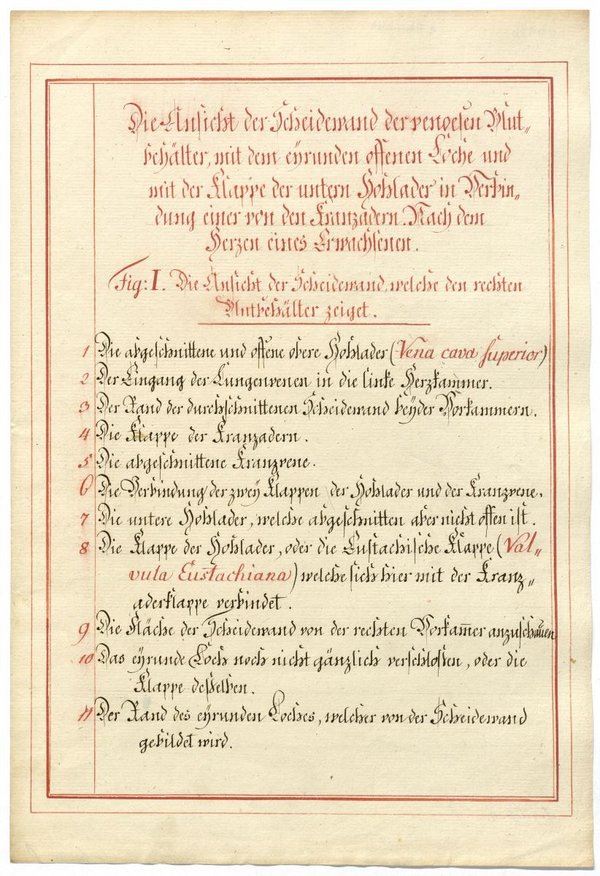 Die Ansicht der Scheidewand der venoesen Blut-
behälter, mit dem eyrunden offenen Loche und
mit der Klappe der untern Hohlader in Verbin-
dung einer von den Kranzadern. Nach dem
Herzen eines Erwachsenen.
Fig: I. Die Ansicht der Scheidewand, welche den rechten
Blutbehälter zeiget.
1 Die abgeschnittene und offene obere Hohlader (Vena cava superior)
2 Der Eingang der Lungenvenen in die linke Herzkammer.
3 Der Rand der durchschnittenen Scheidewand beyder Vorkammern.
4 Die Klappe der Kranzadern.
5 Die abgeschnittene Kranzvene.
6 Die Verbindung der zwey Klappen der Hohlader und der Kranzvene.
7 Die untere Hohlader, welche abgeschnitten aber nicht offen ist.
8 Die Klappe der Hohlader, oder die Eustachische Klappe (Val-
vula Eustachiana) welche sich hier mit der Kranz-
aderklappe verbindet.
9 Die Fläche der Scheidewand von der rechten Vorkam̅er anzuschauen
10 Das eyrunde Loch noch nicht gänzlich verschlossen, oder die
Klappe desselben.
11 Der Rand des eyrunden Loches, welcher von der Scheidewand
gebildet wird.